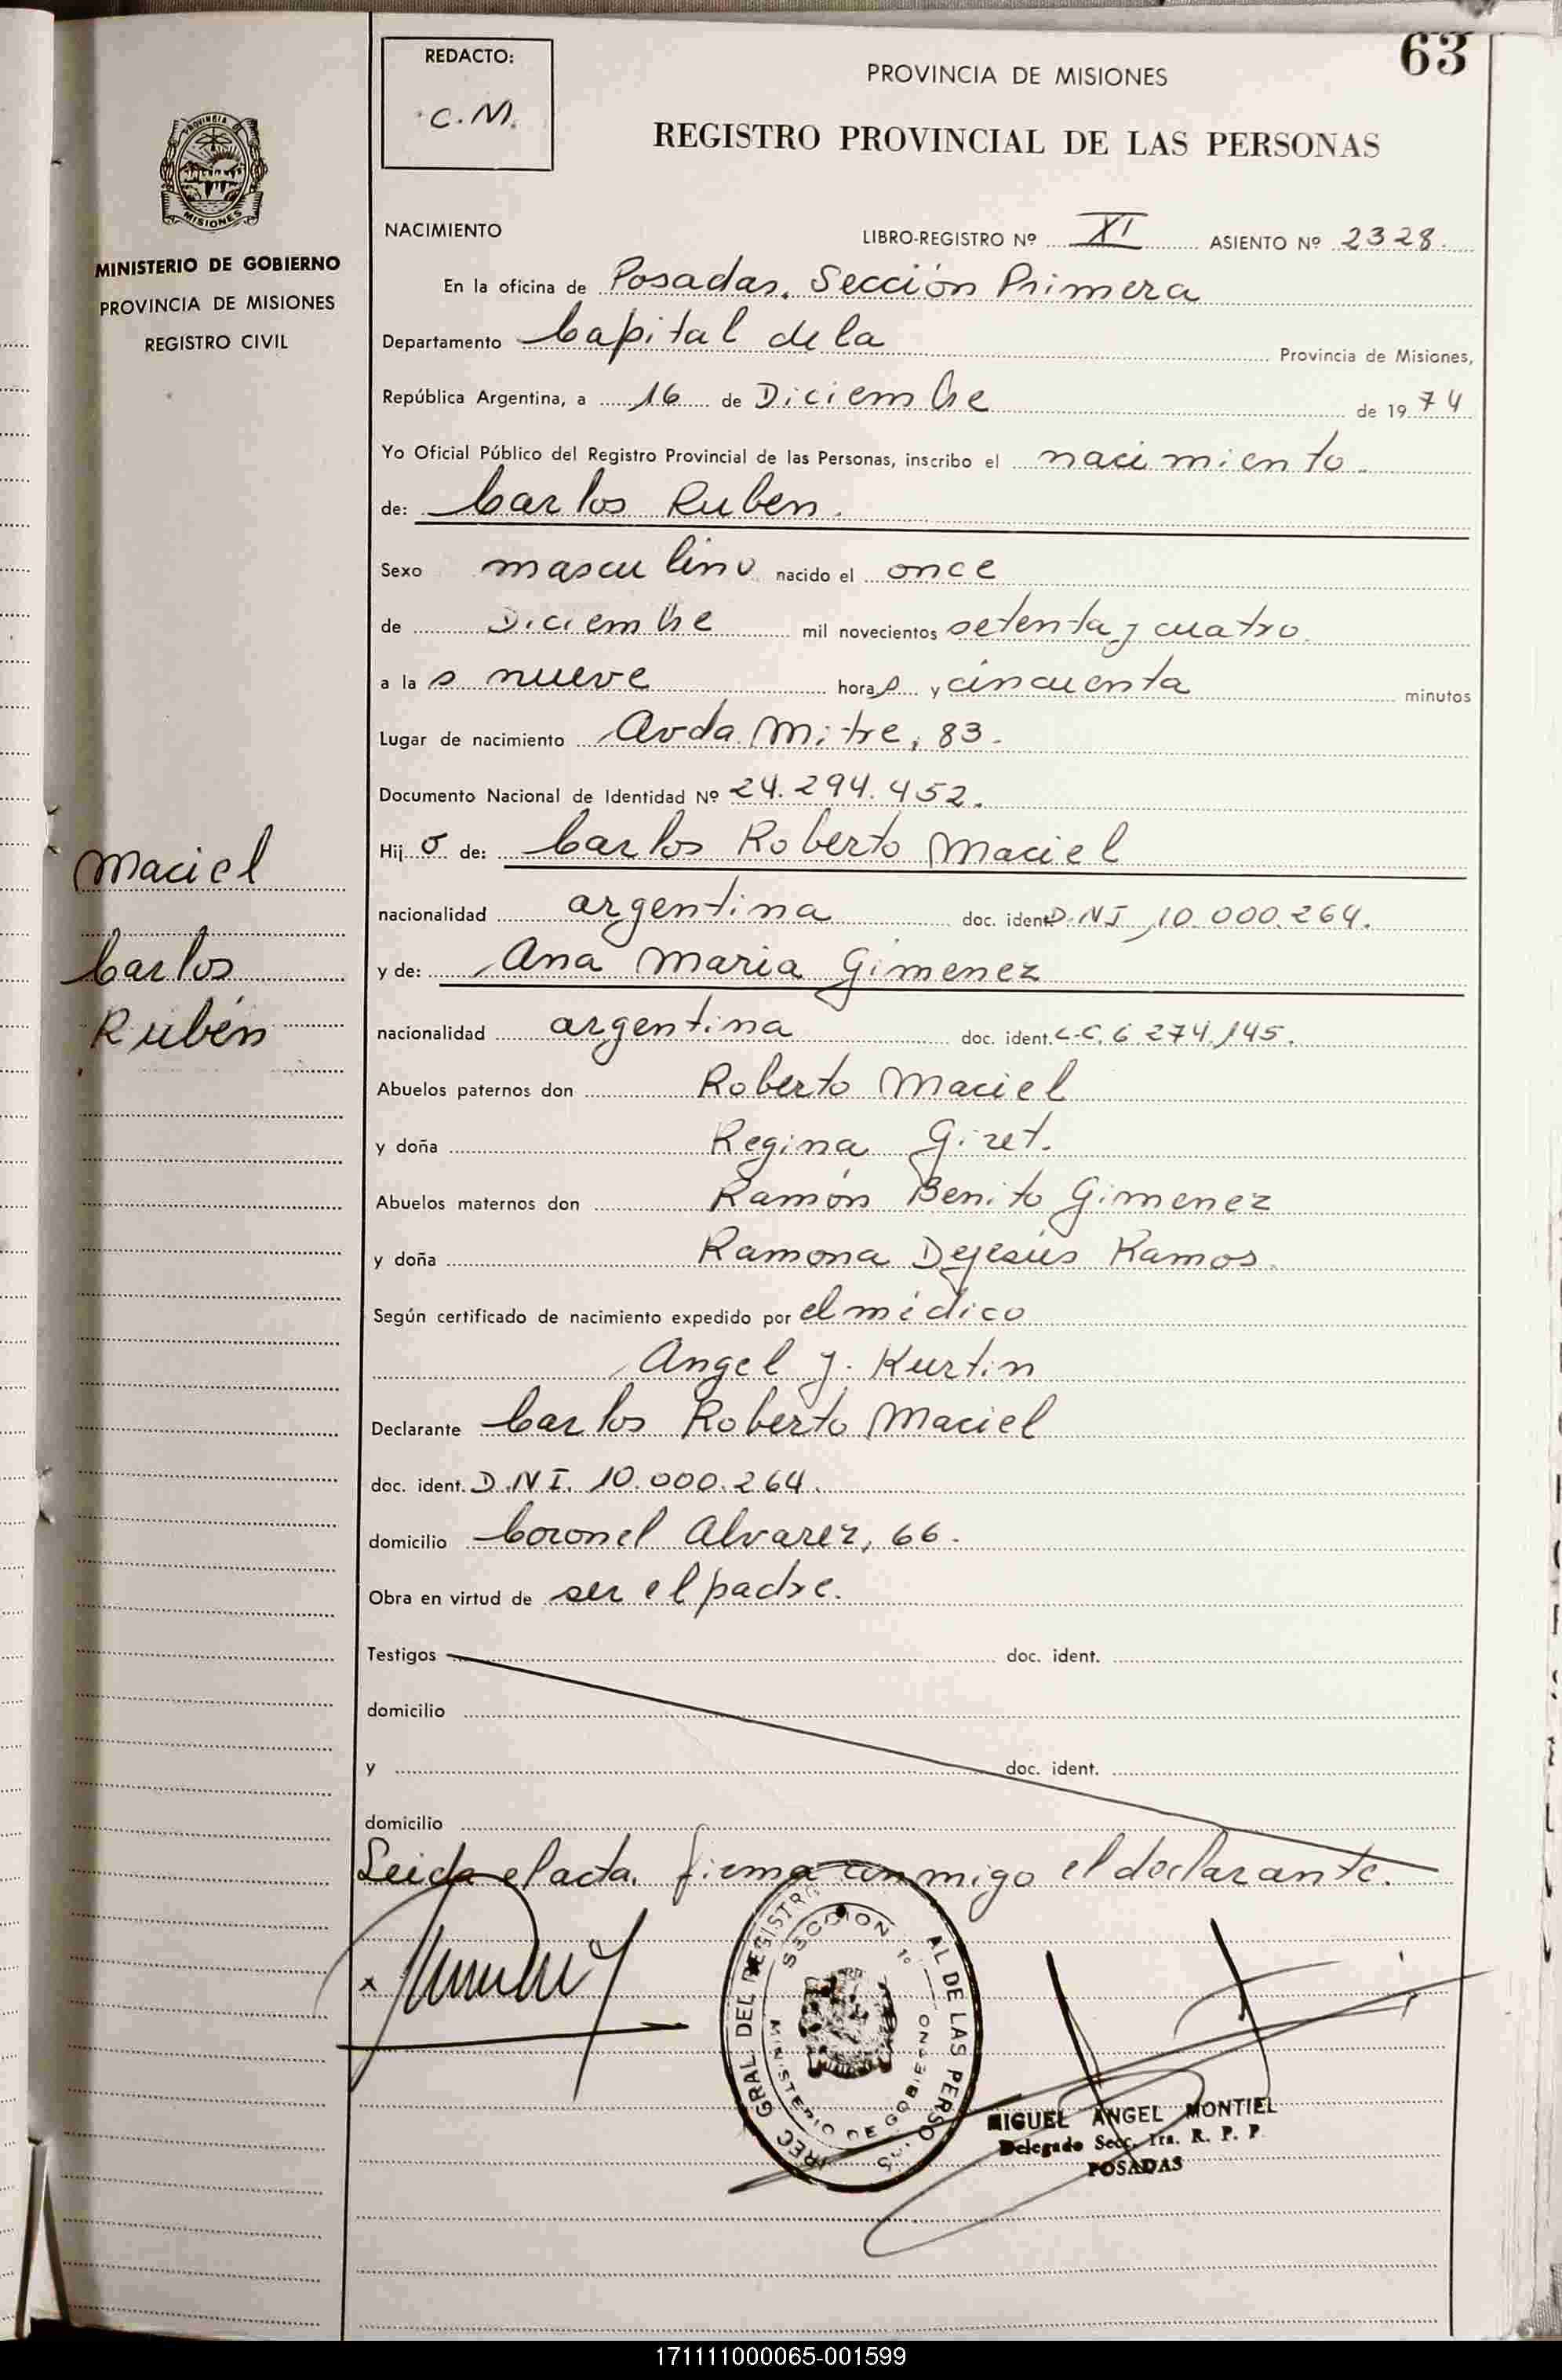 63
REDACTO:
C.M.
PROVINCIA DE MISIONES
REGISTRO PROVINCIAL DE LAS PERSONAS
PROVINCIA DE
MISIONES
MINISTERIO DE GOBIERNO
PROVINCIA DE MISIONES
REGISTRO CIVIL
NACIMIENTO
LIBRO-REGISTRO Nº XI ASIENTO Nº 2328.
En la oficina de Posadas. Sección Primera
Departamento Capital de la Provincia de Misiones,
República Argentina, a 16 de Diciembre de 1974
Yo Oficial Público del Registro Provincial de las Personas, inscribo el nacimiento.
de: Carlos Ruben.
Sexo masculino nacido el once
de Diciembre mil novecientos setenta y cuatro.
a las nueve horas y cincuenta minutos
Lugar de nacimiento Avda. Mitre, 83.
Documento Nacional de Identidad Nº 24.294.452.
Hijo de: Carlos Roberto Maciel
Maciel
Carlos
Rubén
nacionalidad argentina doc. ident. D.N.I. 10.000.264.
y de: Ana Maria Gimenez
nacionalidad argentina doc. ident. L.C. 6.274.145.
Abuelos paternos don Roberto Maciel
y doña Regina Giret.
Abuelos maternos don Ramón Benito Gimenez
y doña Ramona Dejesús Ramos.
Según certificado de nacimiento expedido por el médico
Angel J. Kurtin
Declarante Carlos Roberto Maciel
doc. ident. D.N.I. 10.000.264.
domicilio Coronel Alvarez, 66.
Obra en virtud de ser el padre.
Testigos doc. ident.
domicilio
y doc. ident.
domicilio
Leida el acta. firma conmigo el declarante.
x
SECCION 1º
MINISTERIO DE GOBIERNO
MIGUEL ANGEL MONTIEL
Delegado Secc. 1ra. R. P. P.
POSADAS
171111000065-001599